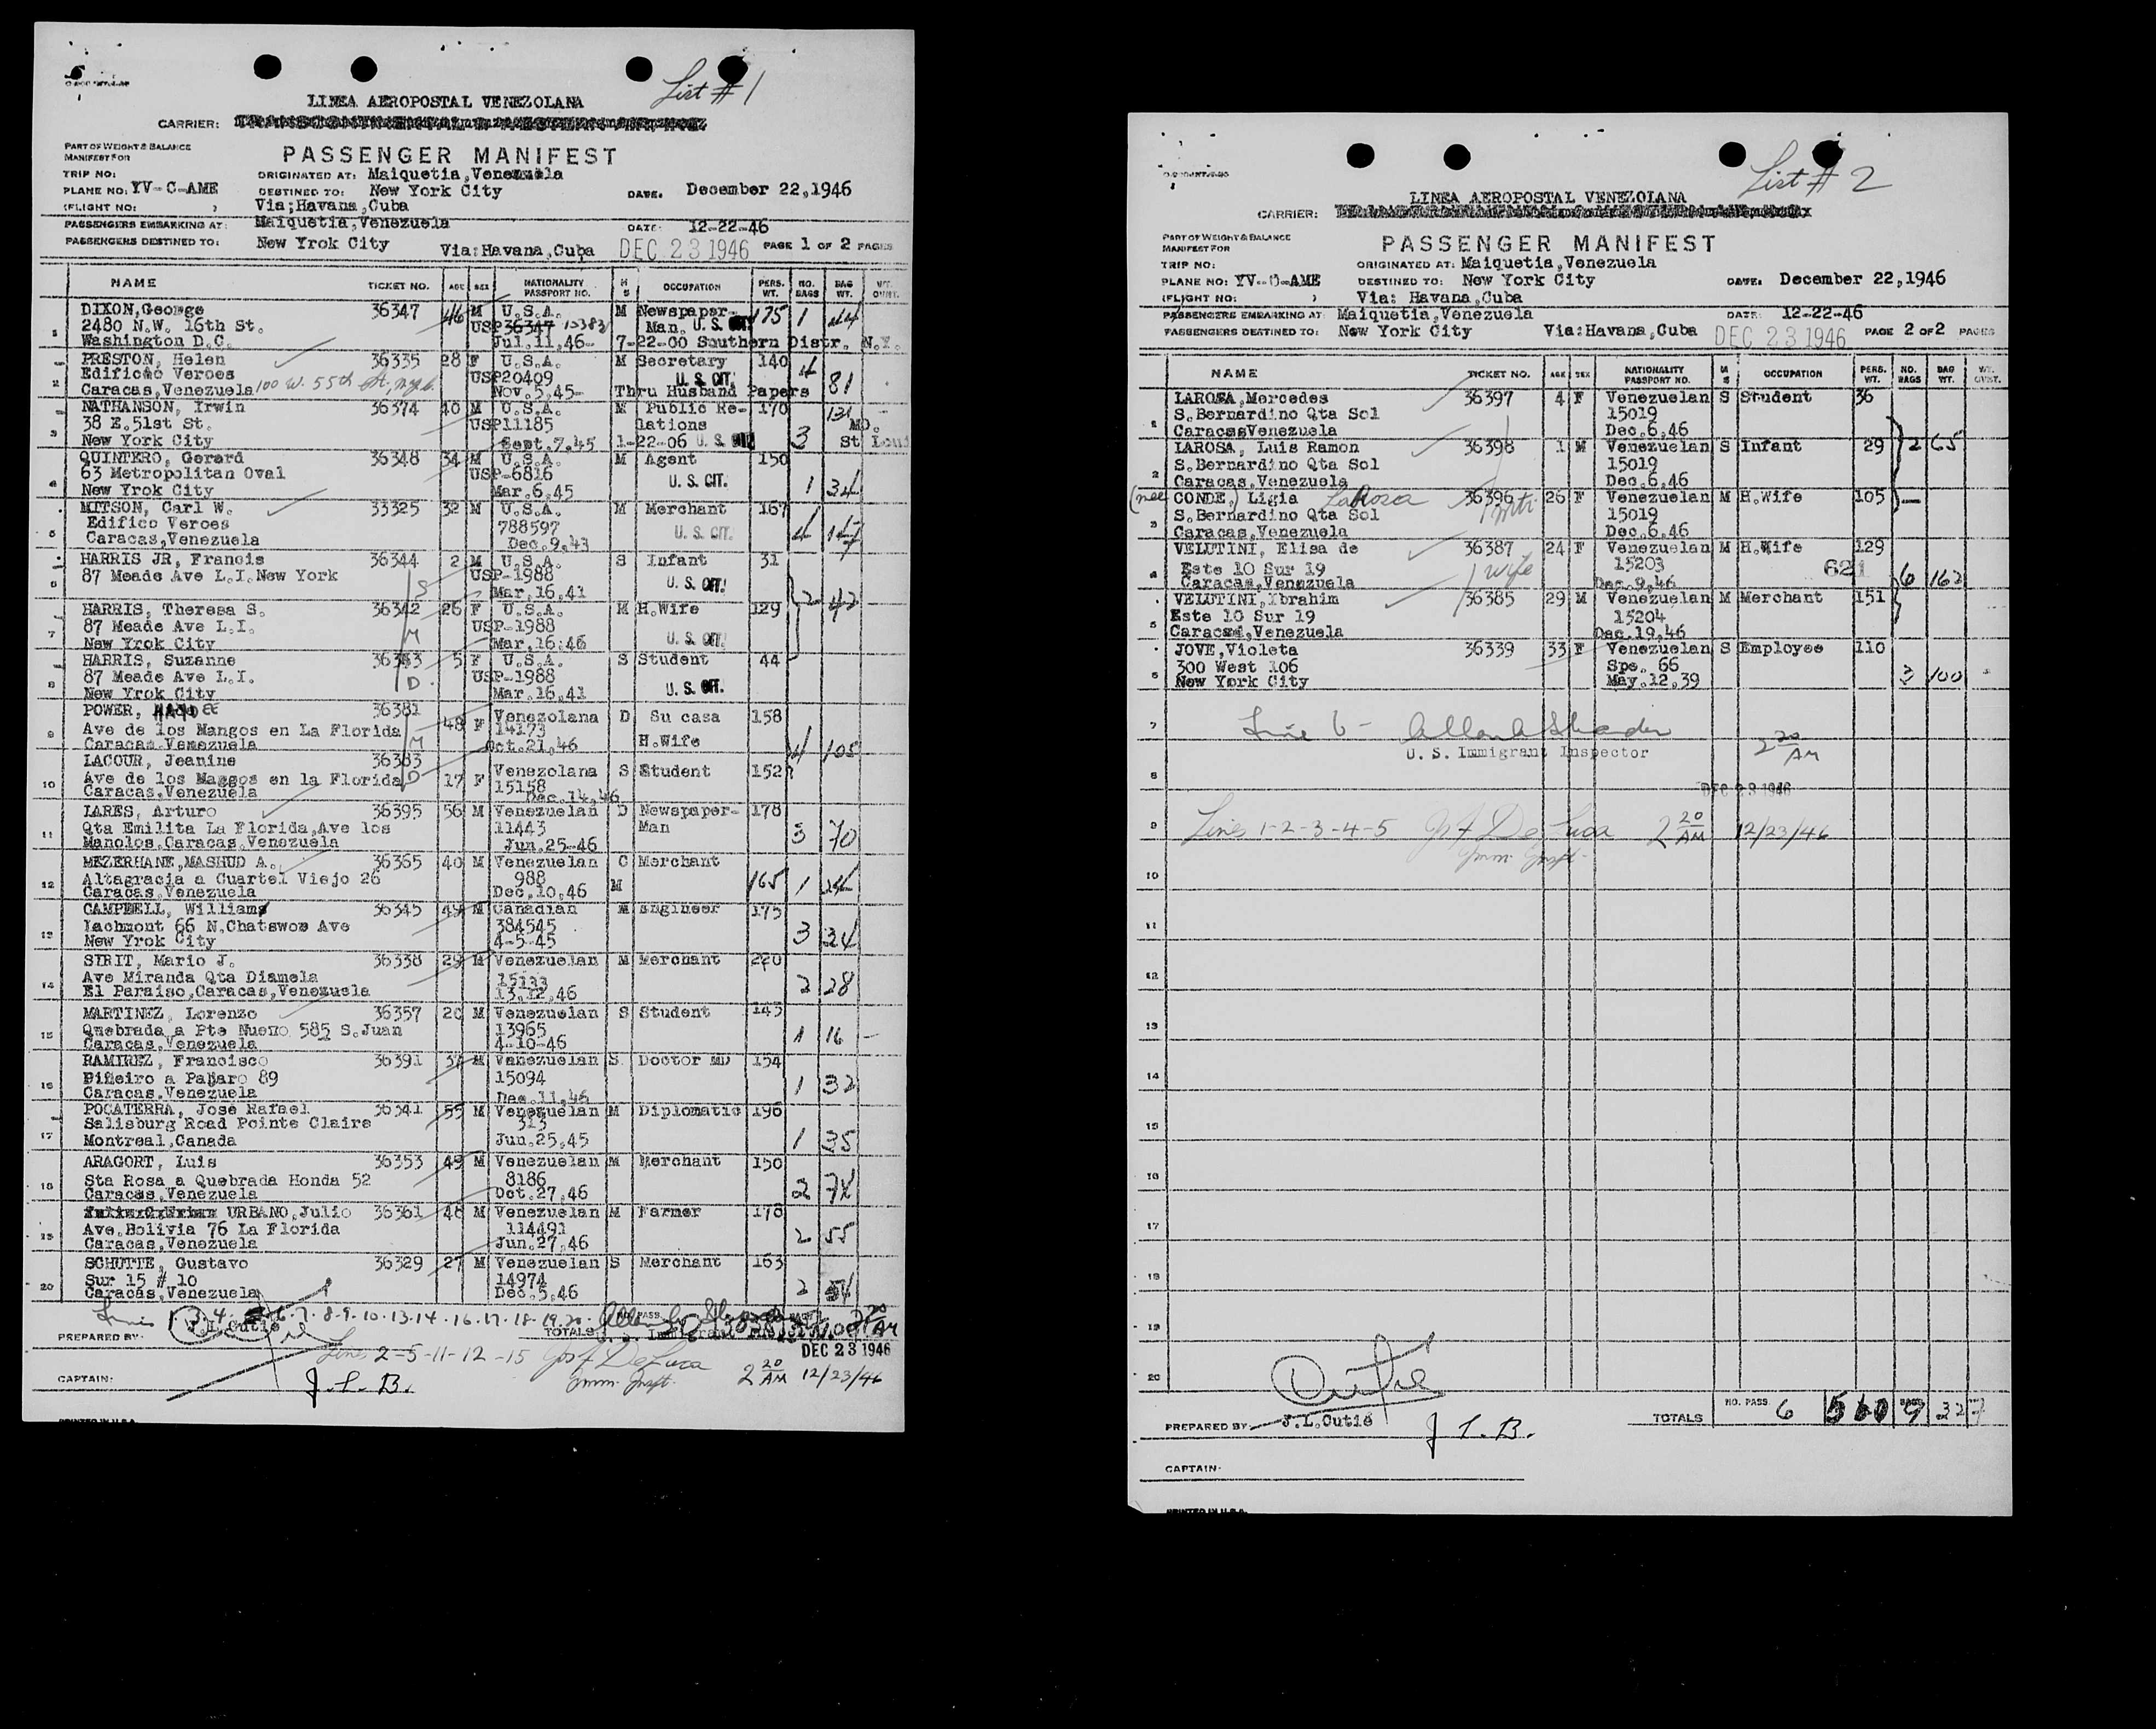 List #1
LINEA AEROPOSTAL VENEZOLANA
CARRIER:
PART OF WEIGHT & BALANCE
MANIFEST FOR
PASSENGER MANIFEST
TRIP NO: ORIGINATED AT: Maiquetia,Venezuela
PLANE NO: YV-C-AME DESTINED TO: New York City DATE. December 22,1946
(FLIGHT NO: ) Via;Havana,Cuba
PASSENGERS EMBARKING AT: Maiquetia,Venezuela DATE: 12-22-46
PASSENGERS DESTINED TO: New Yrok City Via:Havana,Cuba DEC 23 1946 PAGE 1 OF 2 PAGES
NAME TICKET NO. AGE SEX NATIONALITY PASSPORT NO. M S OCCUPATION PERS. WT. NO. BAGS BAG WT.
DIXON,George 36347 46 M U.S.A. M Newspaper- 175 1
1 2480 N.W. 16th St. USP 36347 Man. U.S.
Washington D.C. Jul.11,46- 7-22-00 Southern Distr. N.Y.
PRESTON, Helen 36335 28 F U.S.A. M Secretary 140 4
2 Edificio Veroes USP20409 U. S. CIT. 81
Caracas,Venezuela 100 W. 55th St, Nov.5,45- Thru Husband Papers
NATHANSON, Irwin 36374 40 M U.S.A. M Public Re- 170
3 38 E.51st St. USP11185 lations Mo.
New York City Sept.7.45 1-22-06 U. S. CIT. 3 St Loui
QUINTERO, Gerard 36348 34 M U.S.A. M Agent 150
4 63 Metropolitan Oval USP-6816 U. S. CIT. 1 34
New Yrok City Mar.6,45
MITSON, Carl W. 33325 32 M U.S.A. M Merchant 167
5 Edifico Veroes 788597 U. S. CIT. 4
Caracas,Venezuela Dec.9,43
HARRIS JR, Francis 36344 2 M U.S.A. S Infant 31
6 87 Meade Ave L.I.New York S USP-1988 U. S. CIT. 2 42
Mar,16,41
HARRIS, Theresa S. 36342 26 F U.S.A. M H.Wife 129
7 87 Meade Ave L.I. M USP-1988
New Yrok City Mar,16,46 U. S. CIT.
HARRIS, Suzanne 36343 5 F U.S.A. S Student 44
8 87 Meade Ave L.I. D USP-1988
New Yrok City Mar,16,41 U. S. CIT.
POWER, 36381 48 F Venezolana D Su casa 158
9 Ave de los Mangos en La Florida M 14173
Caracas Venezuela Oct.21,46 H.Wife 4 105
LACOUR, Jeanine 36383
Ave de los Maggos en la Florida D 17 F Venezolana S Student 152
10 Caracas,Venezuela 15158 Dec.14,46
LARES, Arturo 36395 56 M Venezuelan D Newspaper- 178
11 Qta Emilita La Florida,Ave los 11443 Man 3 70
Manolos,Caracas,Venezuela Jun.25-46
MEZERHANE,MASHUD A. 36365 40 M Venezuelan C Merchant
12 Altagracia a Cuartel Viejo 26 988 M 165 1
Caracas,Venezuela Dec.10,46
CAMPBELL, William 36345 49 M Canadian M Engineer 175
13 Lachmont 66 N.Chatswow Ave 384545 3 34
New Yrok City 4-5-45
SIRIT, Mario J. 36338 29 M Venezuelan M Merchant 220
14 Ave Miranda Qta Diamela 15133 2 28
El Paraiso,Caracas,Venezuela 13.12,46
MARTINEZ, Lorenzo 36357 20 M Venezuelan S Student 145
15 Quebrada a Pte Nueno 585 S.Juan 13965 1 16
Caracas,Venezuela 4-10-46
RAMIREZ, Francisco 36391 37 M Venezuelan S Doctor MD 154
16 Piñeiro a Pajaro 89 15094 1 32
Caracas,Venezuela Dec.11,46
POCATERRA, Jose Rafael 36341 55 M Venezuelan M Diplomatic 196
Salisburg Road Pointe Claire 313
17 Montreal,Canada Jun.25,45 1 35
ARAGORT, Luis 36353 49 M Venezuelan M Merchant 150
18 Sta Rosa a Quebrada Honda 52 8186 2 74
Caracas,Venezuela Oct.27,46
URBANO,Julio 36361 48 M Venezuelan M Farmer 178
19 Ave.Bolivia 76 La Florida 114491 2 55
Caracas,Venezuela Jun.27,46
SCHUTTE, Gustavo 36329 27 M Venezuelan S Merchant 163
20 Sur 15 # 10 14974 2
Caracas,Venezuela Dec.5,46
Lines 1 3.4. 6.7.8.9.10.13.14.16.17.18.19.20.
PREPARED BY: J.L.Cutie TOTALS NO. PASS.
DEC 23 1946
Lines 2-5-11-12-15 Jos F DeLuca 2 20 AM 12/23/46
Imm. Inspt.
CAPTAIN: J.L.B.
PRINTED IN U.S.A.
List # 2
LINEA AEROPOSTAL VENEZOLANA
CARRIER:
PART OF WEIGHT & BALANCE
MANIFEST FOR
PASSENGER MANIFEST
TRIP NO: ORIGINATED AT: Maiquetia,Venezuela
PLANE NO: YV-C-AME DESTINED TO: New York City DATE: December 22,1946
(FLIGHT NO: ) Via: Havana,Cuba
PASSENGERS EMBARKING AT: Maiquetia,Venezuela DATE: 12-22-46
PASSENGERS DESTINED TO: New York City Via:Havana,Cuba DEC 23 1946 PAGE 2 OF 2 PAGES
NAME TICKET NO. AGE SEX NATIONALITY PASSPORT NO. M S OCCUPATION PERS. WT. NO. BAGS BAG WT.
LAROSA,Mercedes 36397 4 F Venezuelan S Student 36
1 S.Bernardino Qta Sol 15019
CaracasVenezuela Dec.6,46
LAROSA, Luis Ramon 36398 1 M Venezuelan S Infant 29 2 65
S.Bernardino Qta Sol 15019
2 Caracas,Venezuela Dec.6,46
(nee CONDE,) Ligia LaRosa 36396 26 F Venezuelan M H.Wife 105 —
S.Bernardino Qta Sol 15019
3 Caracas,Venezuela Dec.6,46
VELUTINI, Elisa de 36387 24 F Venezuelan M H.Wife 129
4 Este 10 Sur 19 wife 15203 621 6 162
Caracas,Venezuela Dec.9,46
VELUTINI,Ibrahim 36385 29 M Venezuelan M Merchant 151
Este 10 Sur 19 15204
5 Caracas,Venezuela Dec.19,46
JOVE,Violeta 36339 33 F Venezuelan S Employee 110
300 West 106 Spe. 66
6 New York City May.12,39 3 100
7 Line 6 -
U.S. Immigrant Inspector 2 20 AM
8
DEC 23 1946
9 Lines 1-2-3-4-5 Jos F DeLuca 2 20 AM 12/23/46
Imm. Inspt.
10
11
12
13
14
15
16
17
18
19
20
Cutie
PREPARED BY J.L.Cutie TOTALS NO. PASS 6 560 BAGS 9 327
J L.B.
CAPTAIN:
PRINTED IN U.S.A.